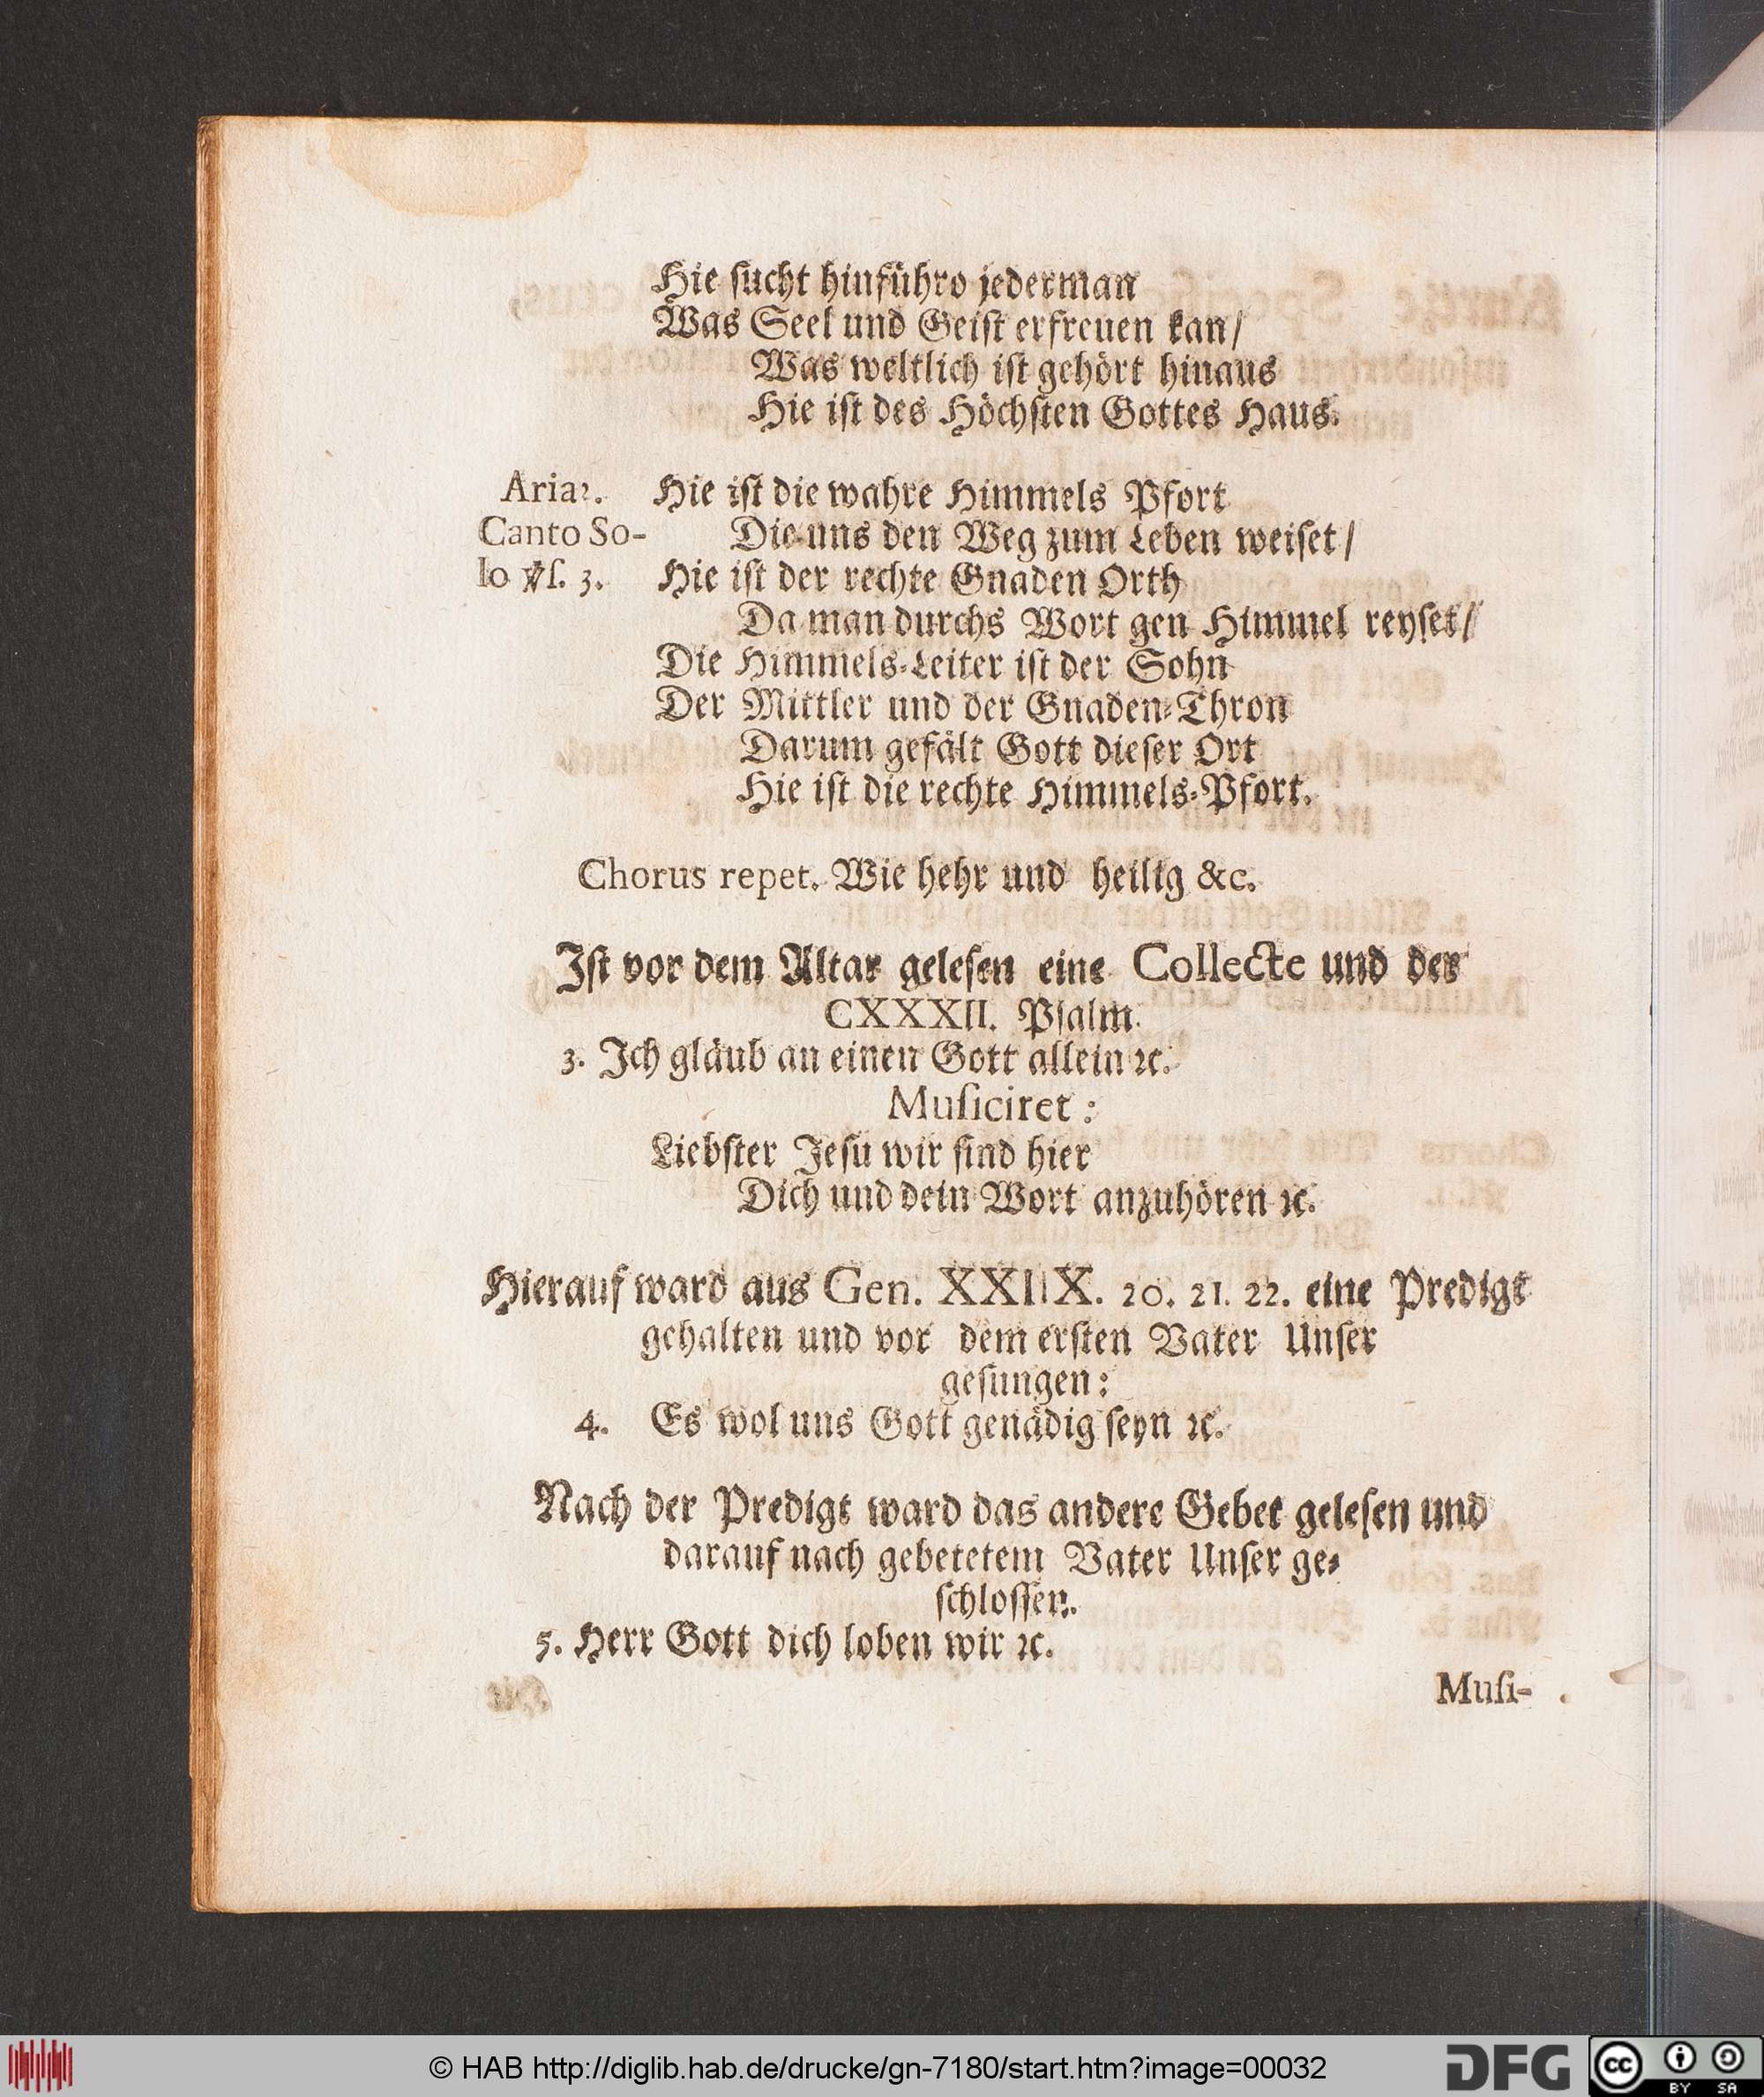 Hie ſucht hinführo jederman
Was Seel und Geiſt erfreuen kan/
Was weltlich iſt gehört hinaus
Hie iſt des Höchſten Gottes Haus.
Aria2. Hie iſt die wahre Himmels Pfort
Canto So- Die uns den Weg zum Leben weiſet/
lo ℣ſ. 3. Hie iſt der rechte Gnaden Orth
Da man durchs Wort gen Himmel reyſet/
Die Himmels-Leiter iſt der Sohn
Der Mittler und der Gnaden-Thron
Darum gefält Gott dieſer Ort
Hie iſt die rechte Himmels-Pfort.
Chorus repet. Wie hehr und heilig &c.
Iſt vor dem Altar geleſen eine Collecte und der
CXXXII. Pſalm.
3. Ich gläub an einen Gott allein ꝛc.
Muſiciret:
Liebſter Jeſu wir ſind hier
Dich und dein Wort anzuhören ꝛc.
Hierauf ward aus Gen. XXIIX. 20. 21. 22. eine Predigt
gehalten und vor dem erſten Vater Unſer
geſungen:
4. Es wol uns Gott genädig ſeyn ꝛc.
Nach der Predigt ward das andere Gebet geleſen und
darauf nach gebetetem Vater Unſer ge-
ſchloſſen.
5. Herr Gott dich loben wir ꝛc.
Muſi-
© HAB http://diglib.hab.de/drucke/gn-7180/start.htm?image=00032
DFG
cc BY SA